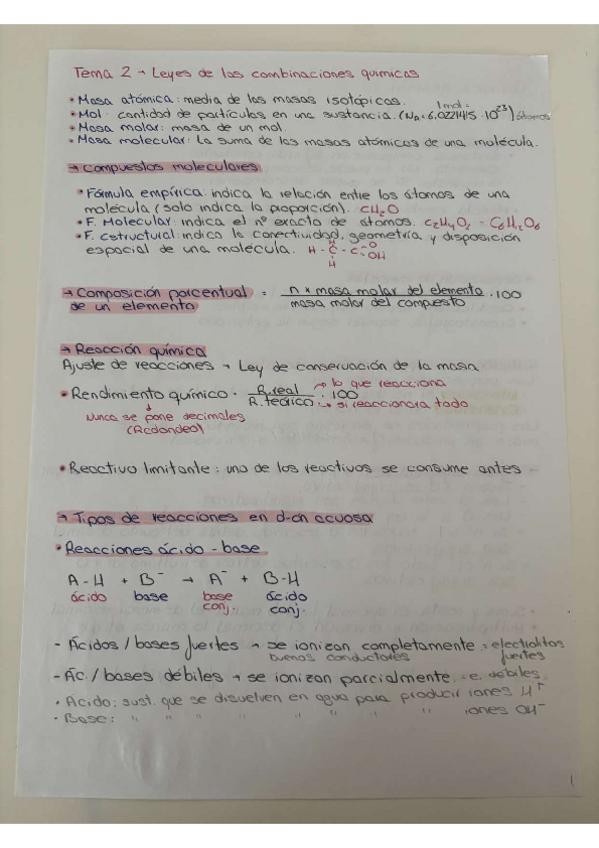 Tema 2 → Leyes de las combinaciones químicas
• Masa atómica: media de las masas isotópicas.
1mol =
• Mol: cantidad de partículas en una sustancia. (NA = 6,0221415 · 10^23) átomos
• Masa molar: masa de un mol.
• Masa molecular: la suma de las masas atómicas de una molécula.
→ Compuestos moleculares
• Fórmula empírica: indica la relación entre los átomos de una
molécula (solo indica la proporción). CH2O
• F. Molecular: indica el nº exacto de átomos. C2H4O2 - C6H12O6
• F. Estructural: indica la conectividad, geometría y disposición
espacial de una molécula. H - C - C = O
H OH
→ Composición porcentual = n × masa molar del elemento · 100
de un elemento masa molar del compuesto
→ Reacción química
Ajuste de reacciones → Ley de conservación de la masa
• Rendimiento químico · R.real → lo que reacciona
R.teórico · 100 → si reaccionara todo
Nunca se pone decimales
(Redondeo)
• Reactivo limitante: uno de los reactivos se consume antes
→ Tipos de reacciones en d-on acuosa
• Reacciones ácido - base
A-H + B⁻ → A⁻ + B-H
ácido base base ácido
conj. conj.
- Ácidos / bases fuertes → se ionizan completamente = electrolitos
buenos conductores fuertes
- Ác. / bases débiles → se ionizan parcialmente = e. débiles.
• Ácido: sust. que se disuelven en agua para producir iones H⁺
• Base: " " " " " " iones OH⁻
1